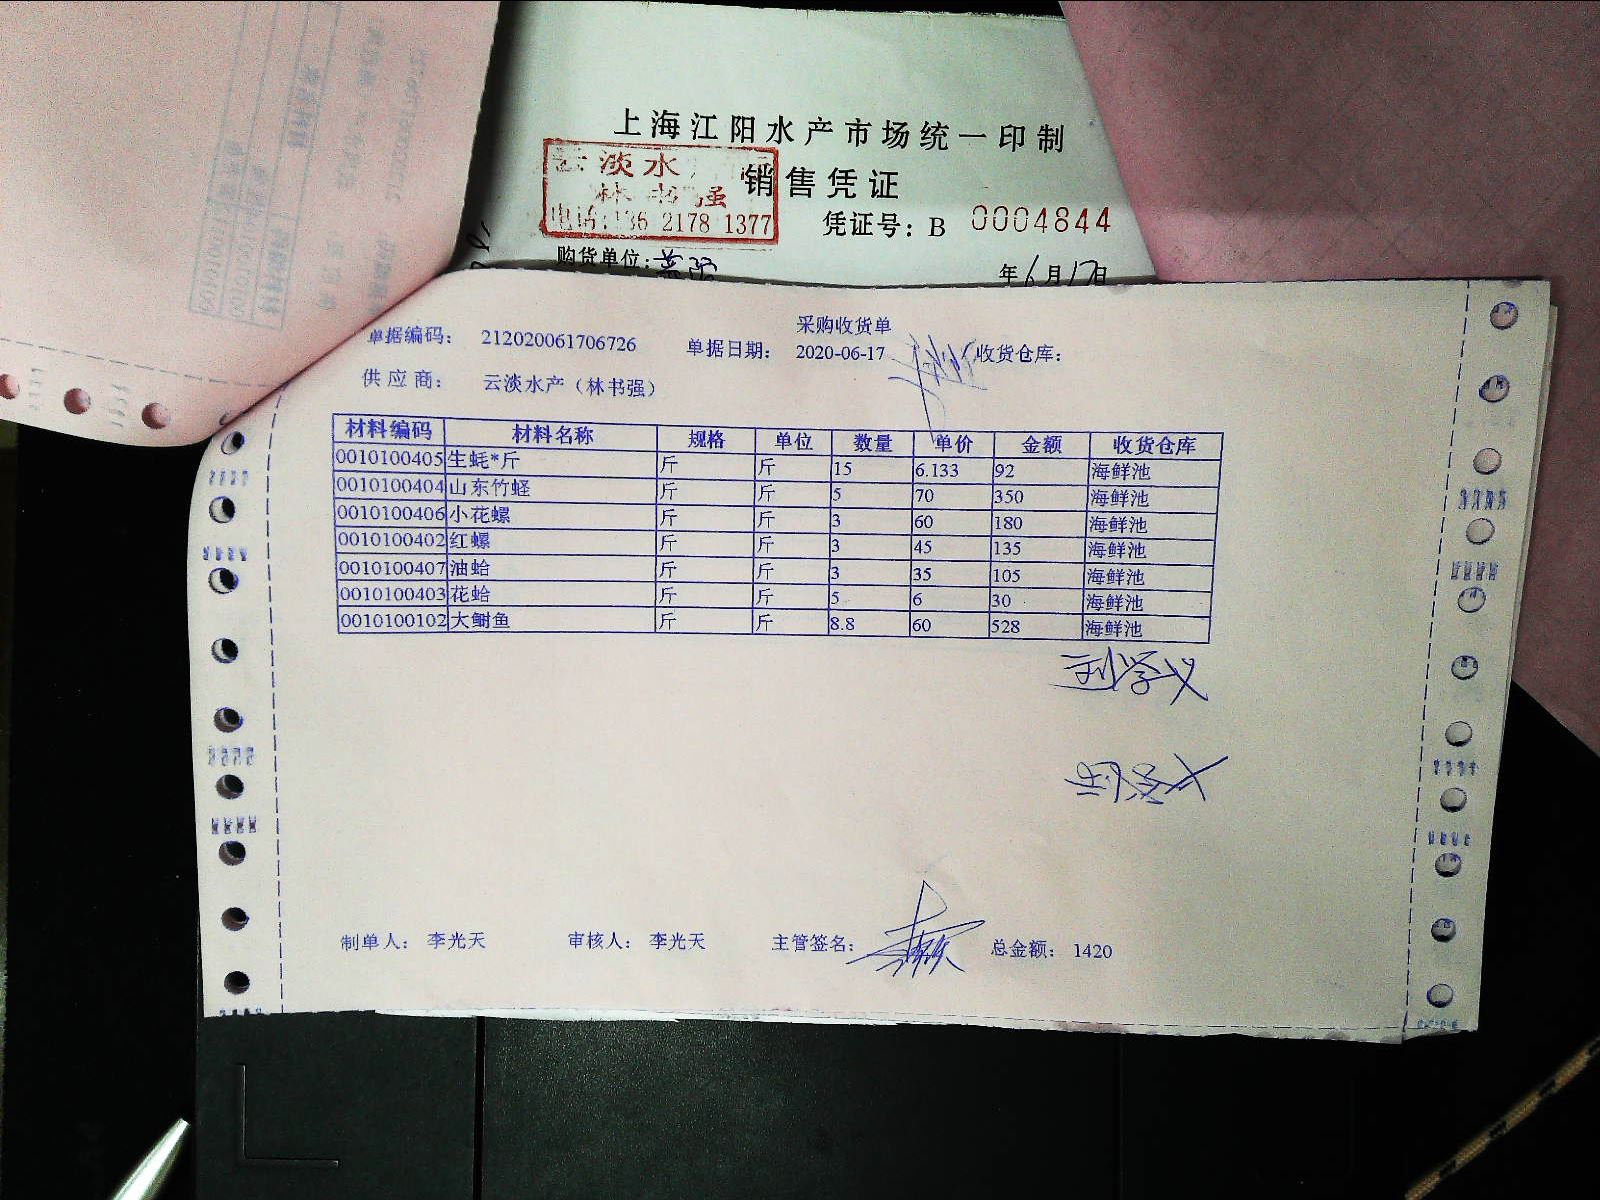 上海江阳水产市场统一印制
云淡水
林书强
电话:136 2178 1377
销售凭证
凭证号：B 0004844
购货单位：
年6月17日
采购收货单
单据编码： 212020061706726 单据日期： 2020-06-17 收货仓库：
供应商： 云淡水产（林书强）
材料编码 材料名称 规格 单位 数量 单价 金额 收货仓库
0010100405 生蚝*斤 斤 斤 15 6.133 92 海鲜池
0010100404 山东竹蛏 斤 斤 5 70 350 海鲜池
0010100406 小花螺 斤 斤 3 60 180 海鲜池
0010100402 红螺 斤 斤 3 45 135 海鲜池
0010100407 油蛤 斤 斤 3 35 105 海鲜池
0010100403 花蛤 斤 斤 5 6 30 海鲜池
0010100102 大鮒鱼 斤 斤 8.8 60 528 海鲜池
刘学义
制单人： 李光天 审核人： 李光天 主管签名： 总金额： 1420